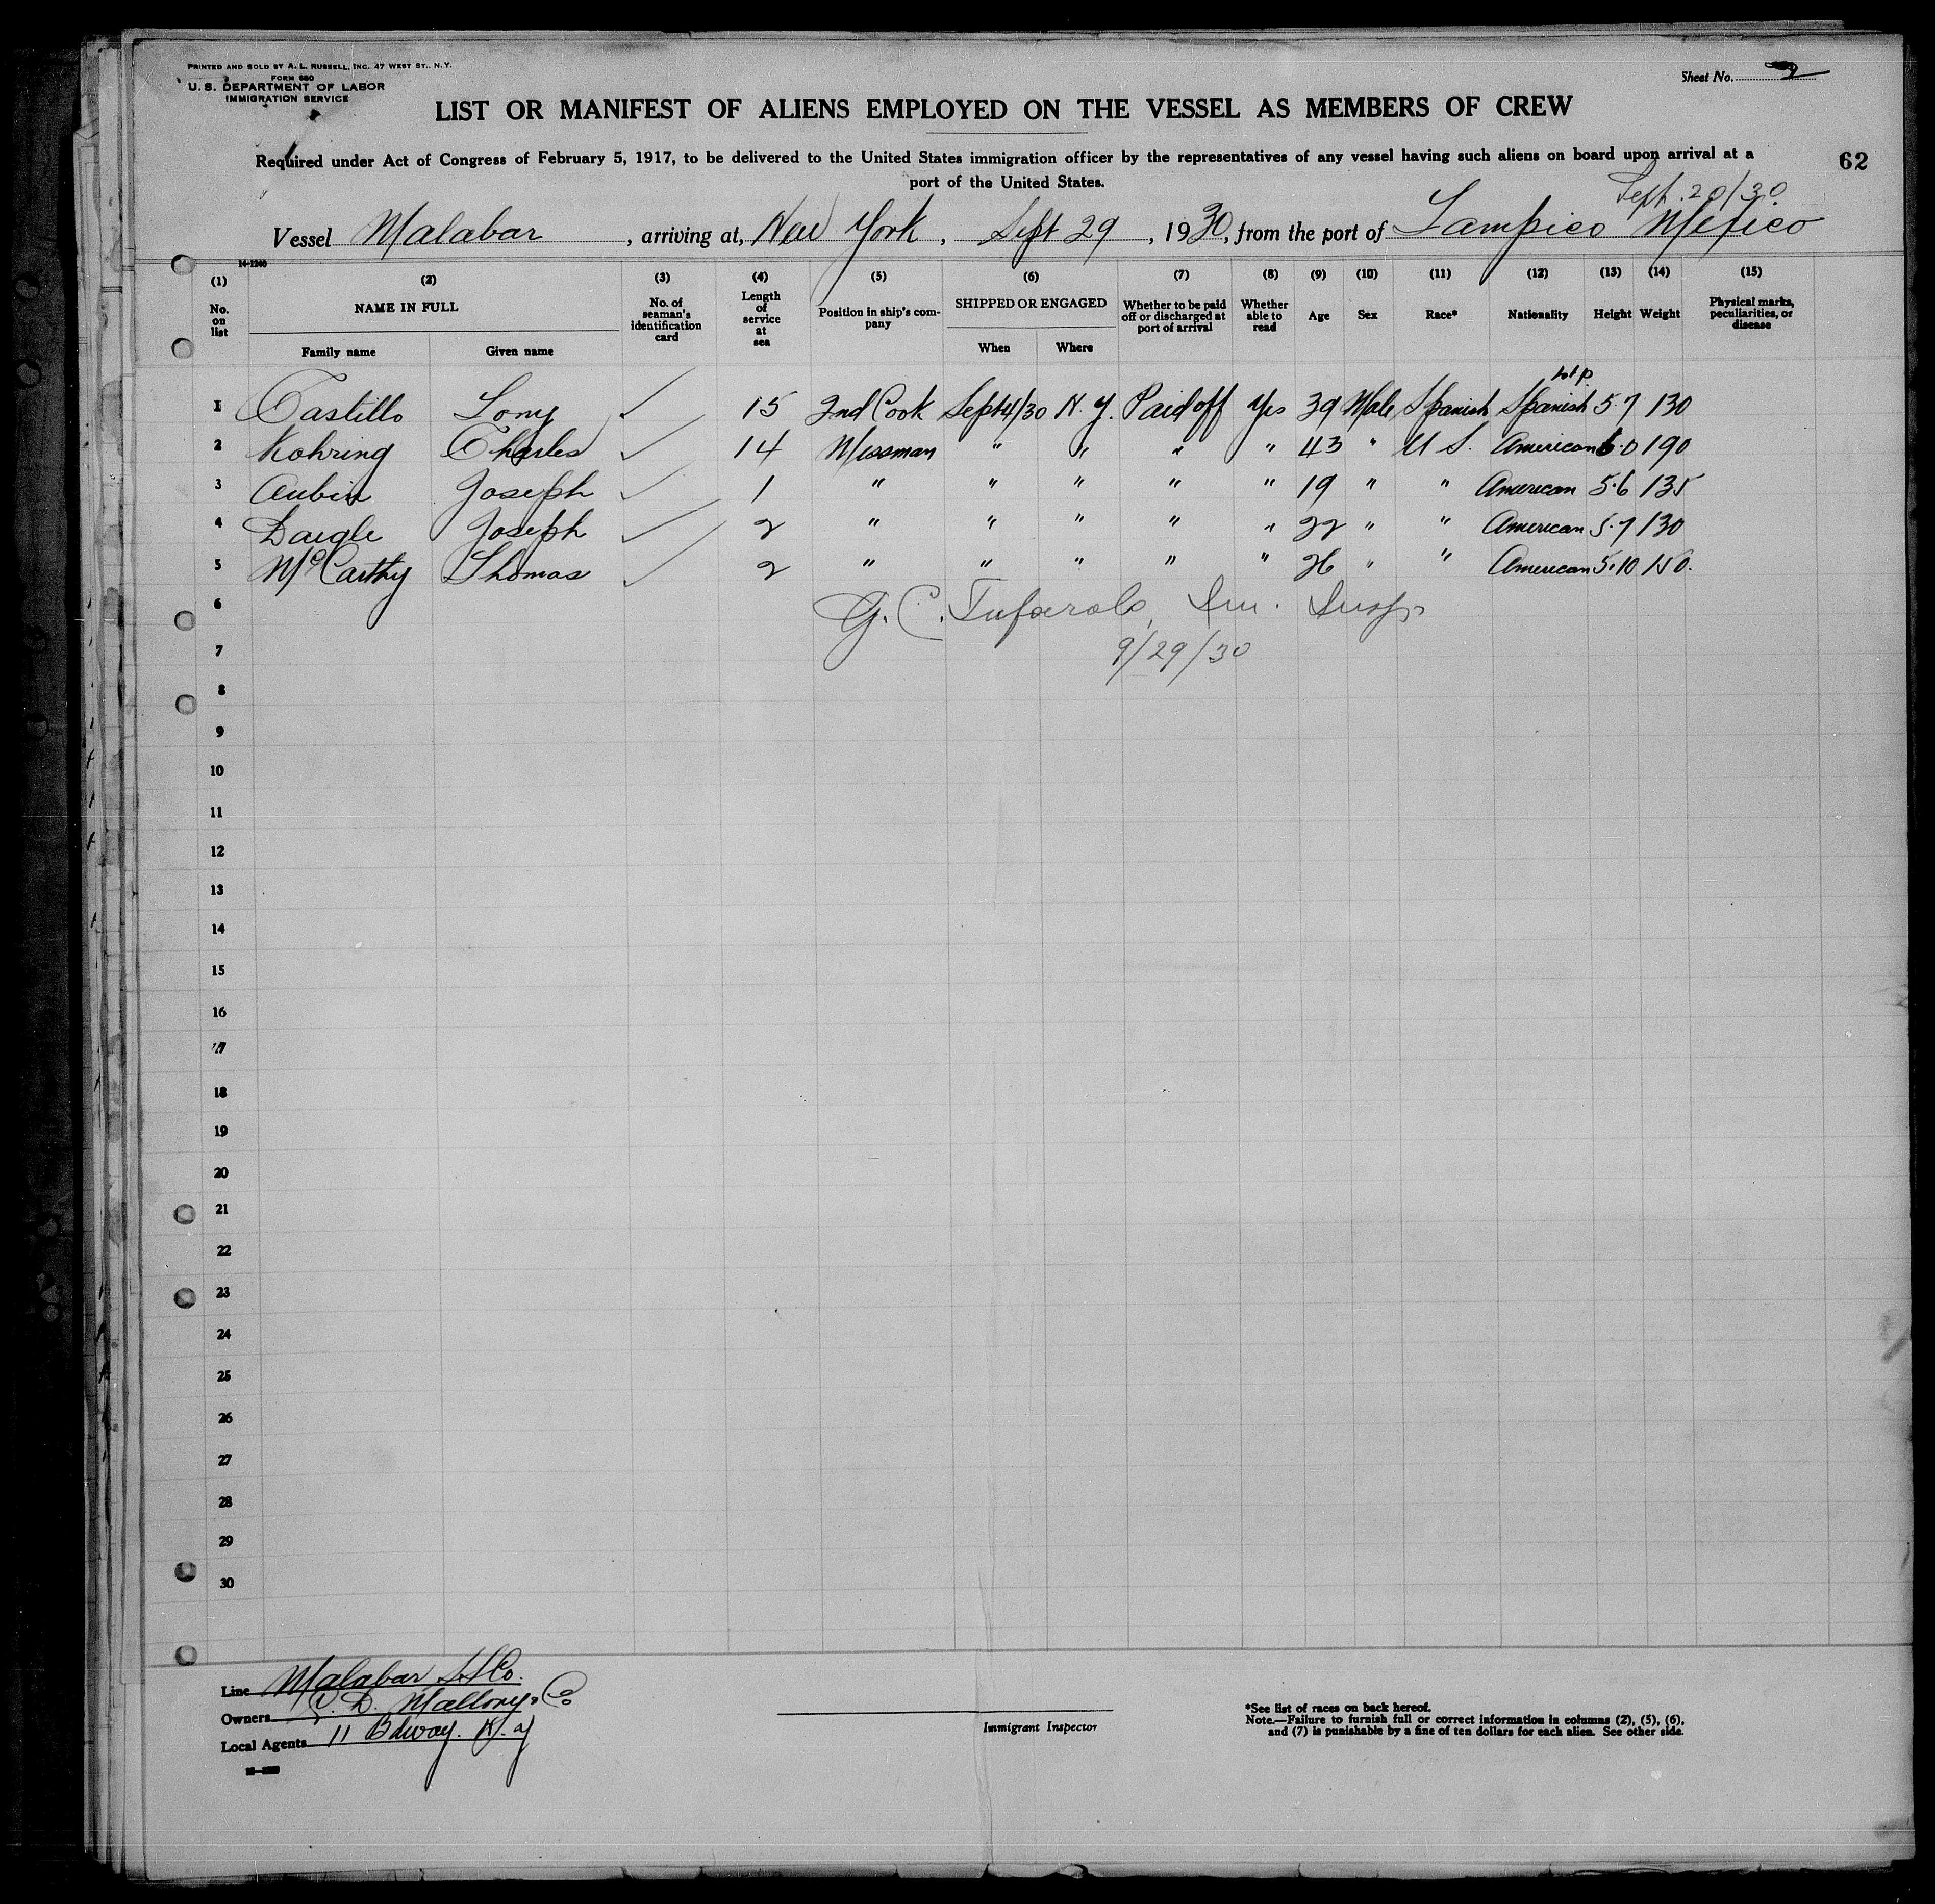 PRINTED AND SOLD BY A. L. RUSSELL, INC. 47 WEST ST., N.Y.
FORM 680
U. S. DEPARTMENT OF LABOR
IMMIGRATION SERVICE
Sheet No. 2
LIST OR MANIFEST OF ALIENS EMPLOYED ON THE VESSEL AS MEMBERS OF CREW
Required under Act of Congress of February 5, 1917, to be delivered to the United States immigration officer by the representatives of any vessel having such aliens on board upon arrival at a
port of the United States.
62
Sept. 20/30
Vessel Malabar, arriving at, New York, Sept 29, 1930, from the port of Tampico Mexico
14-1240
(1) (2) (3) (4) (5) (6) (7) (8) (9) (10) (11) (12) (13) (14) (15)
No. on list NAME IN FULL No. of seaman's identification card Length of service at sea Position in ship's company SHIPPED OR ENGAGED Whether to be paid off or discharged at port of arrival Whether able to read Age Sex Race* Nationality Height Weight Physical marks, peculiarities, or disease
Family name Given name When Where
1 Castillo Tony ✓ 15 2nd Cook Sept 4/30 N.Y. Paid off Yes 39 Male Spanish Spanish 5.7 130
2 Kohring Charles ✓ 14 Messman " " " " 43 " U S. American 6.0 190
3 Aubin Joseph ✓ 1 " " " " " 19 " " American 5.6 135
4 Daigle Joseph ✓ 2 " " " " " 22 " " American 5.7 130
5 McCarthy Thomas ✓ 2 " " " " " 26 " " American 5.10 150.
6 G. C. Im. Insp.
7 9/29/30
8
9
10
11
12
13
14
15
16
17
18
19
20
21
22
23
24
25
26
27
28
29
30
Line Malabar SS Co.
Owners C. D. Mallory & Co
Local Agents 11 Bdway. N.Y
Immigrant Inspector
*See list of races on back hereof.
Note.—Failure to furnish full or correct information in columns (2), (5), (6),
and (7) is punishable by a fine of ten dollars for each alien. See other side.